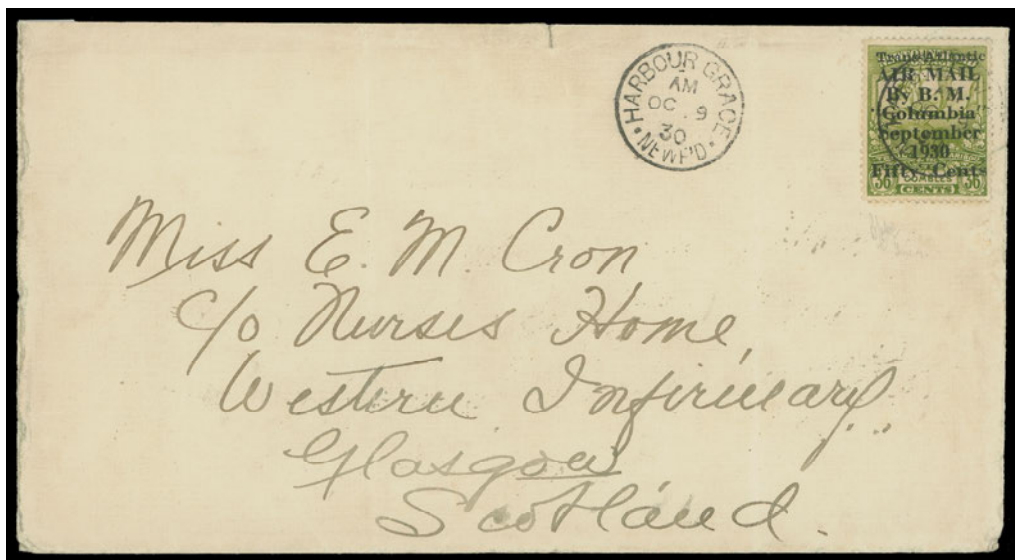 HARBOUR GRACE
AM
OC 9
30
NEWF'D
Trans-Atlantic
AIR MAIL
By B. M.
"Columbia"
September
1930
Fifty Cents
36 CENTS 36
Miss E. M. Cron
c/o Nurses Home,
Western Infirmary
Glasgow
Scotland.